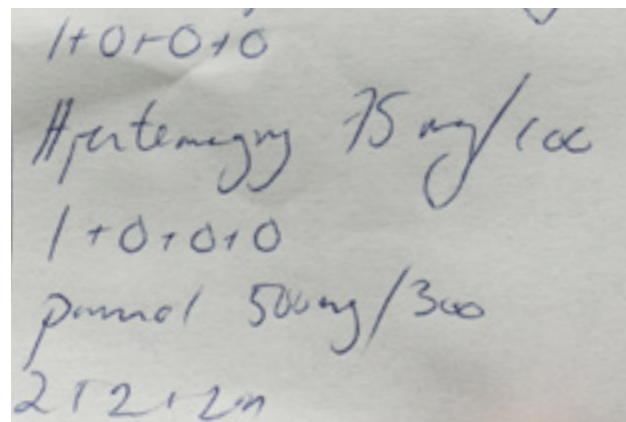 1+0+0+0
Hjertemagnyl 75 mg/100
1+0+0+0
pamol 500mg/300
2+2+2+n